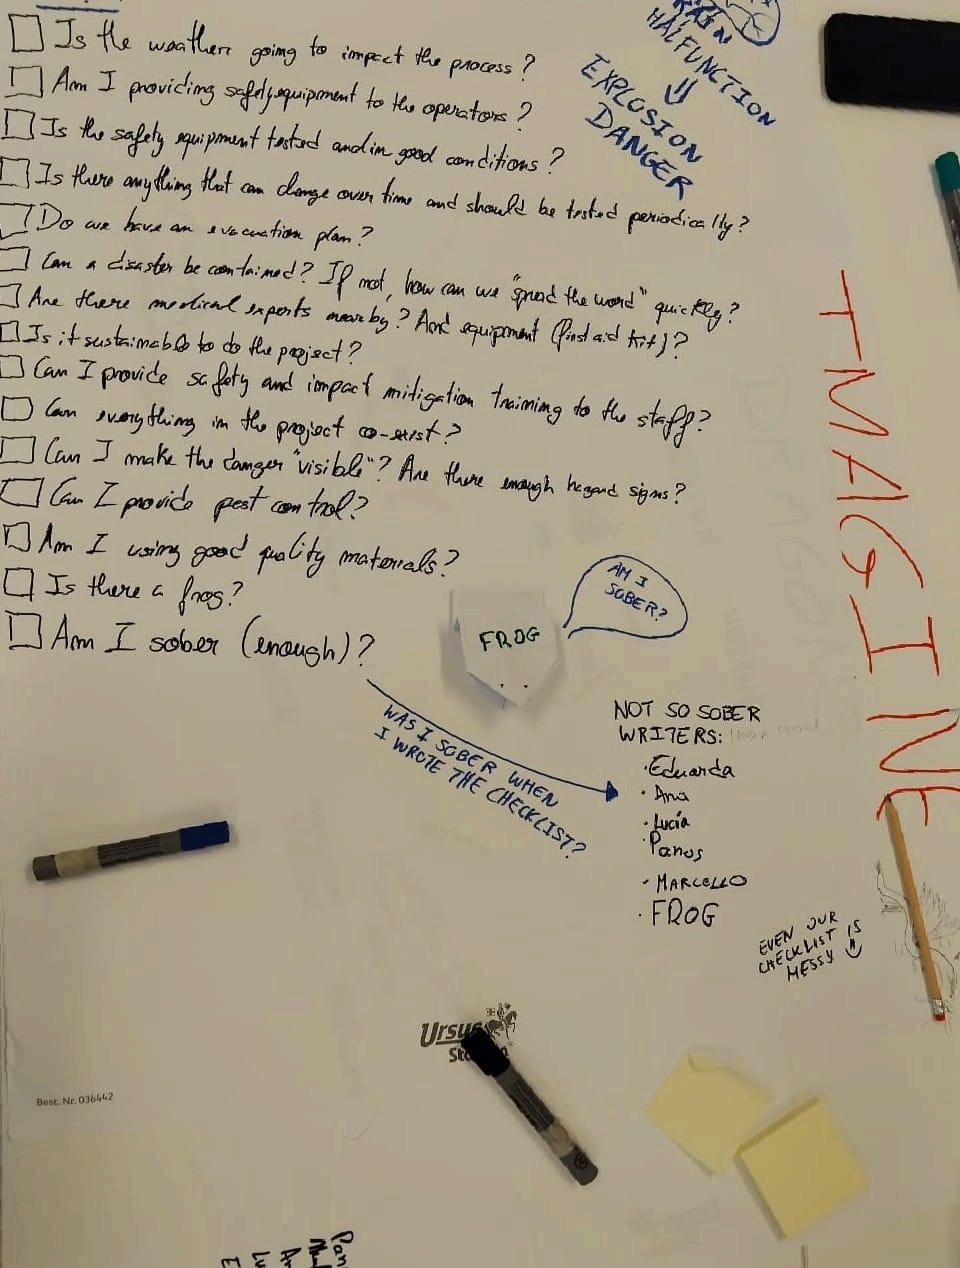 Is the weather going to impact the process?
Am I providing safety equipment to the operators?
Is the safety equipment tested and in good conditions?
Is there anything that can change over time and should be tested periodically?
Do we have an evacuation plan?
Can a disaster be contained? If not, how can we "spread the word" quickly?
Are there medical experts nearby? And equipment (first aid kit)?
Is it sustainable to do the project?
Can I provide safety and impact mitigation training to the staff?
Can everything in the project co-exist?
Can I make the danger "visible"? Are there enough hazard signs?
Can I provide pest control?
Am I using good quality materials?
Is there a frog?
Am I sober (enough)?
MALFUNCTION
EXPLOSION
DANGER
IMAGINE
FROG
AM I
SOBER?
WAS I SOBER WHEN
I WROTE THE CHECKLIST?
NOT SO SOBER
WRITERS:
· Eduarda
· Ana
· Lucía
· Panos
· MARCELLO
· FROG
EVEN OUR
CHECKLIST IS
MESSY
Ursus
Best. Nr. 036442
Pan